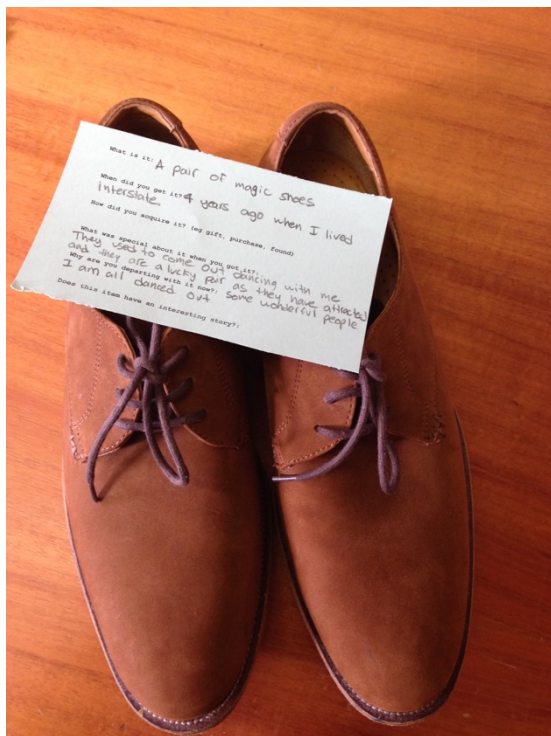 What is it: A pair of magic shoes
When did you get it? 4 years ago when I lived
Interstate
How did you acquire it? (eg gift, purchase, found)
What was special about it when you got it?:
They used to come out dancing with me
and they are a lucky pair as they have attracted
Why are you departing with it now?: some wonderful people
I am all danced out.
Does this item have an interesting story?: